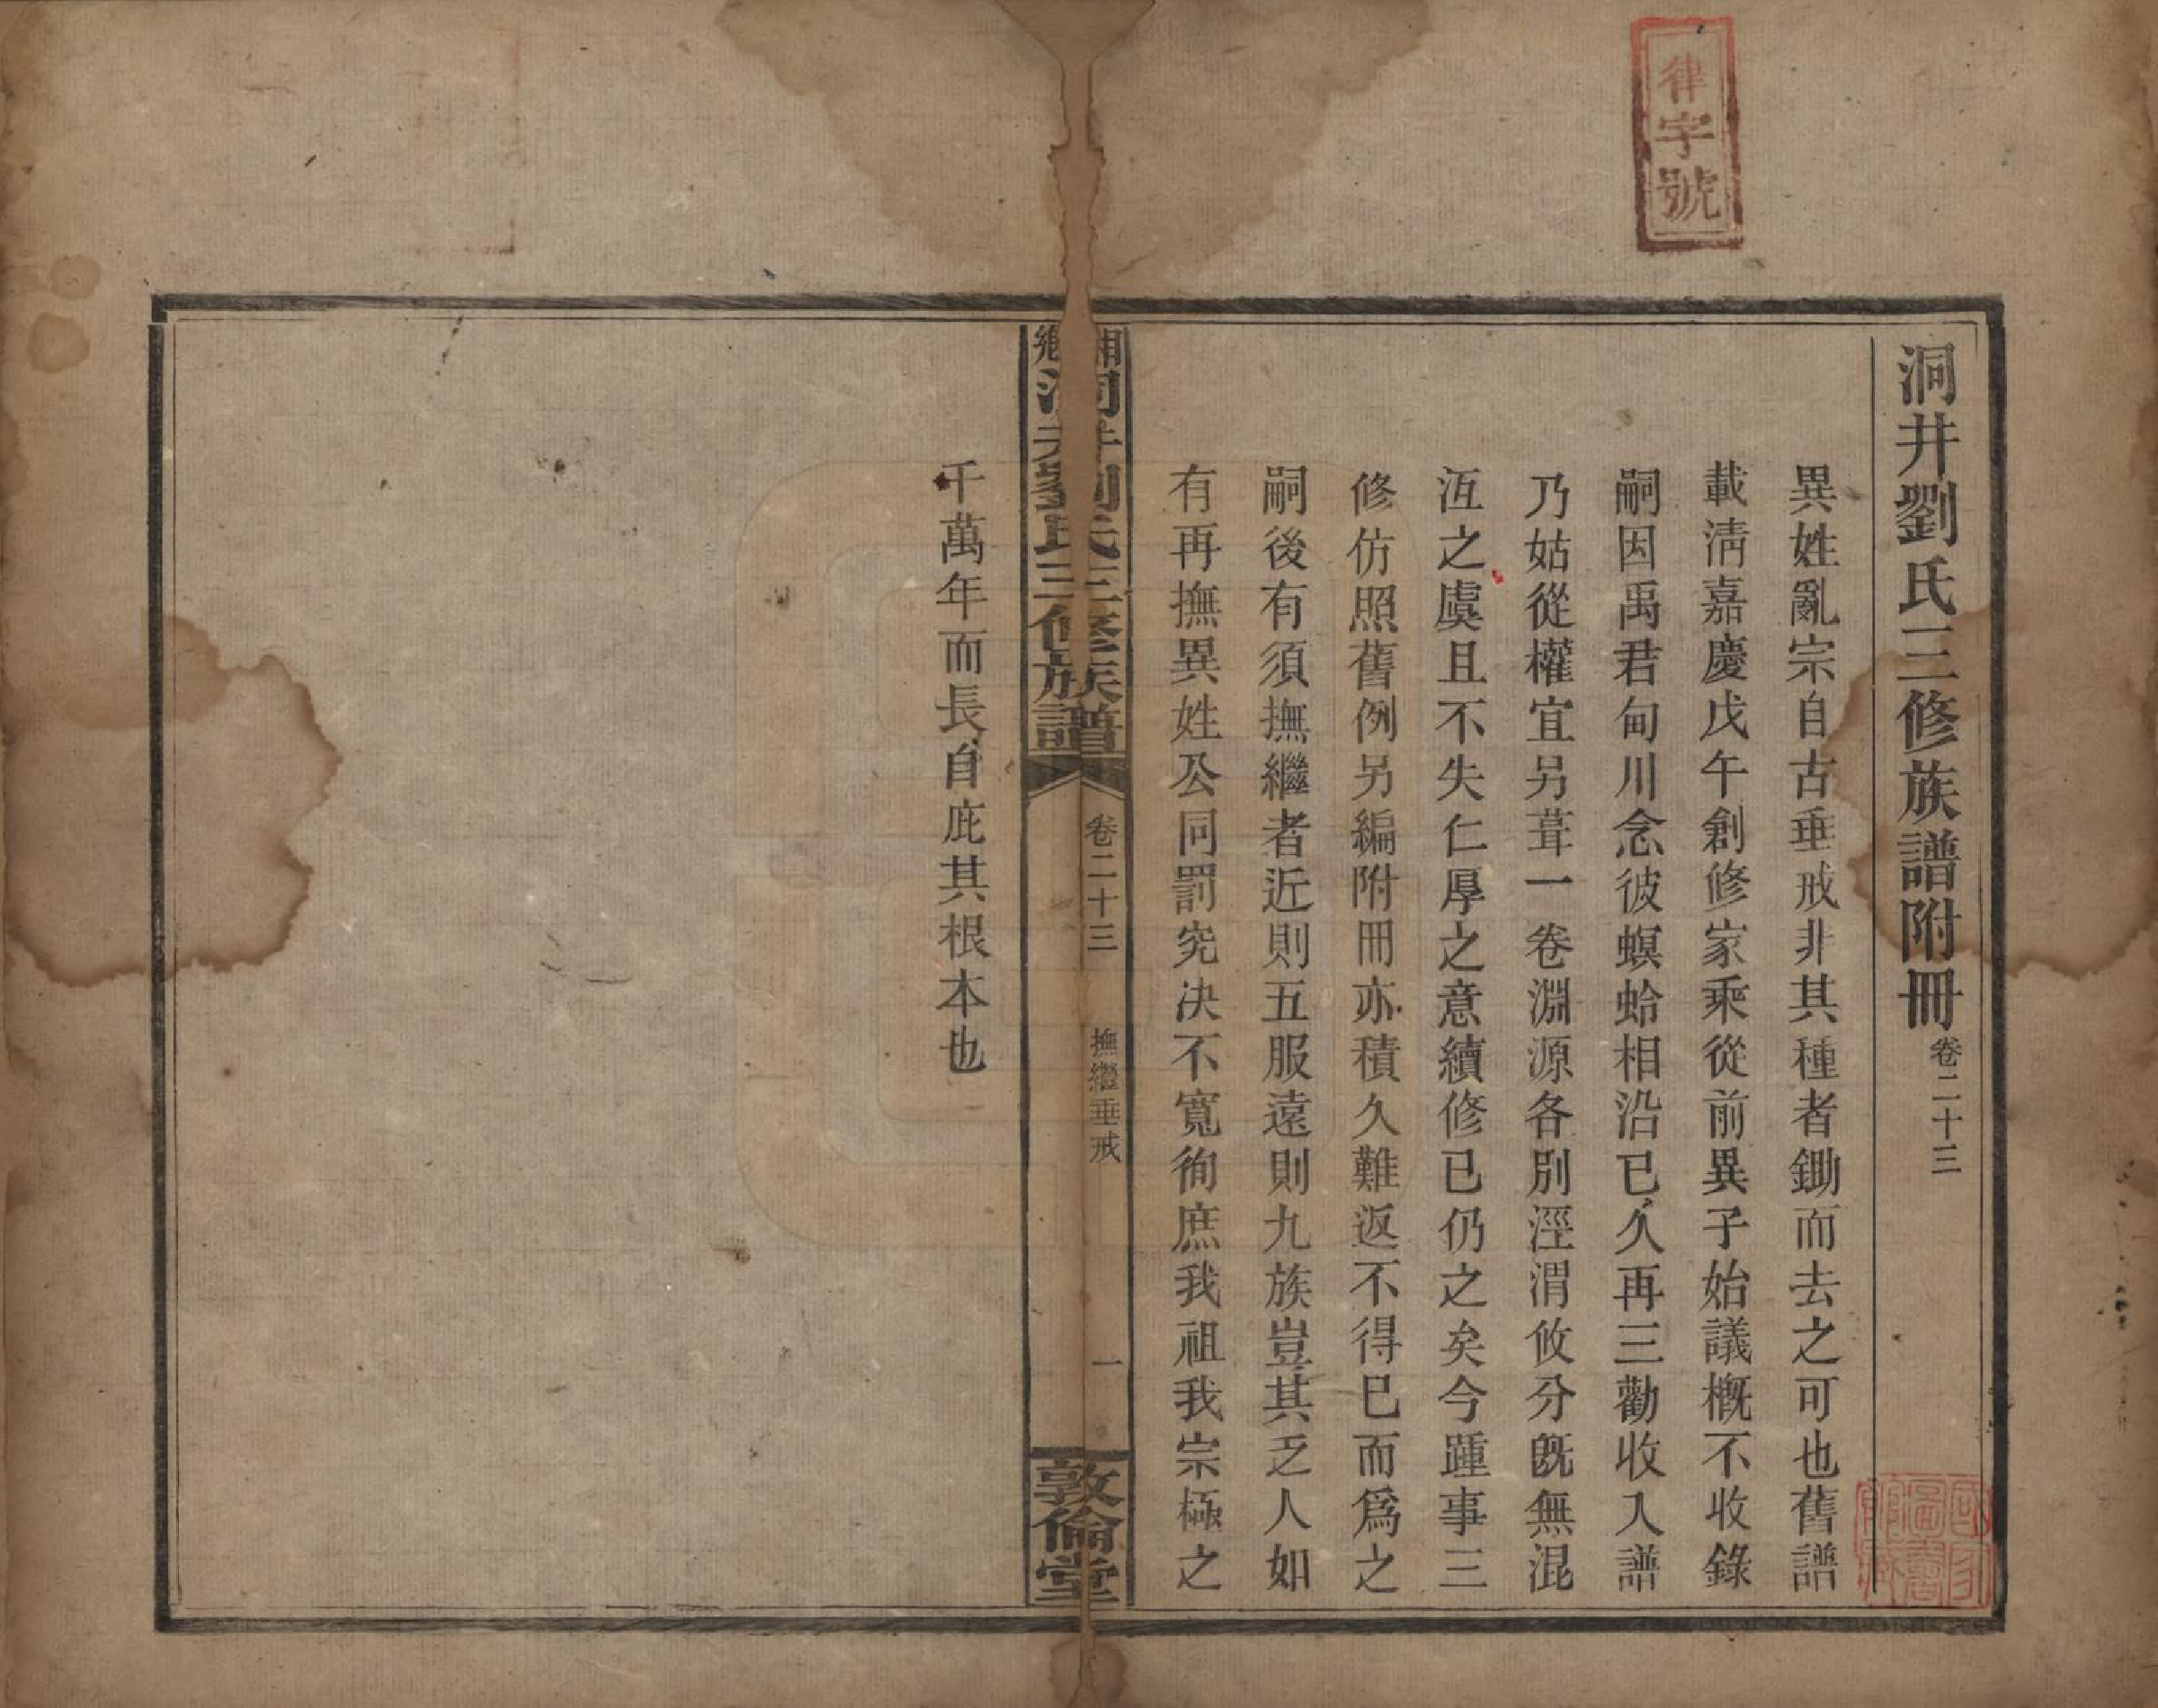 律字號
洞井劉氏三修族譜附冊 卷二十三
異姓亂宗自古垂戒非其種者鋤而去之可也舊譜
載淸嘉慶戊午創修家乘從前異子始議槪不收錄
嗣因禹君甸川念彼螟蛉相沿已久再三勸收入譜
乃姑從權宜另葺一卷淵源各別涇渭攸分旣無混
冱之虞且不失仁厚之意續修已仍之矣今踵事三
修仿照舊例另編附冊亦積久難返不得已而爲之
嗣後有須撫繼者近則五服遠則九族豈其乏人如
有再撫異姓公同罰究决不寬徇庶我祖我宗極之
湘鄉洞井劉氏三修族譜
卷二十三
撫繼垂戒
一
敦倫堂
千萬年而長自庇其根本也